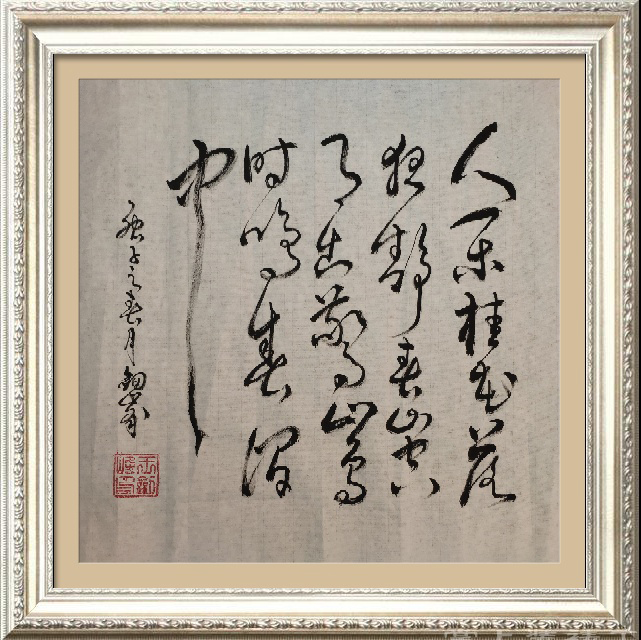 人闲桂花落
夜静春山空
月出惊山鸟
时鸣春涧
中
庚子之春月